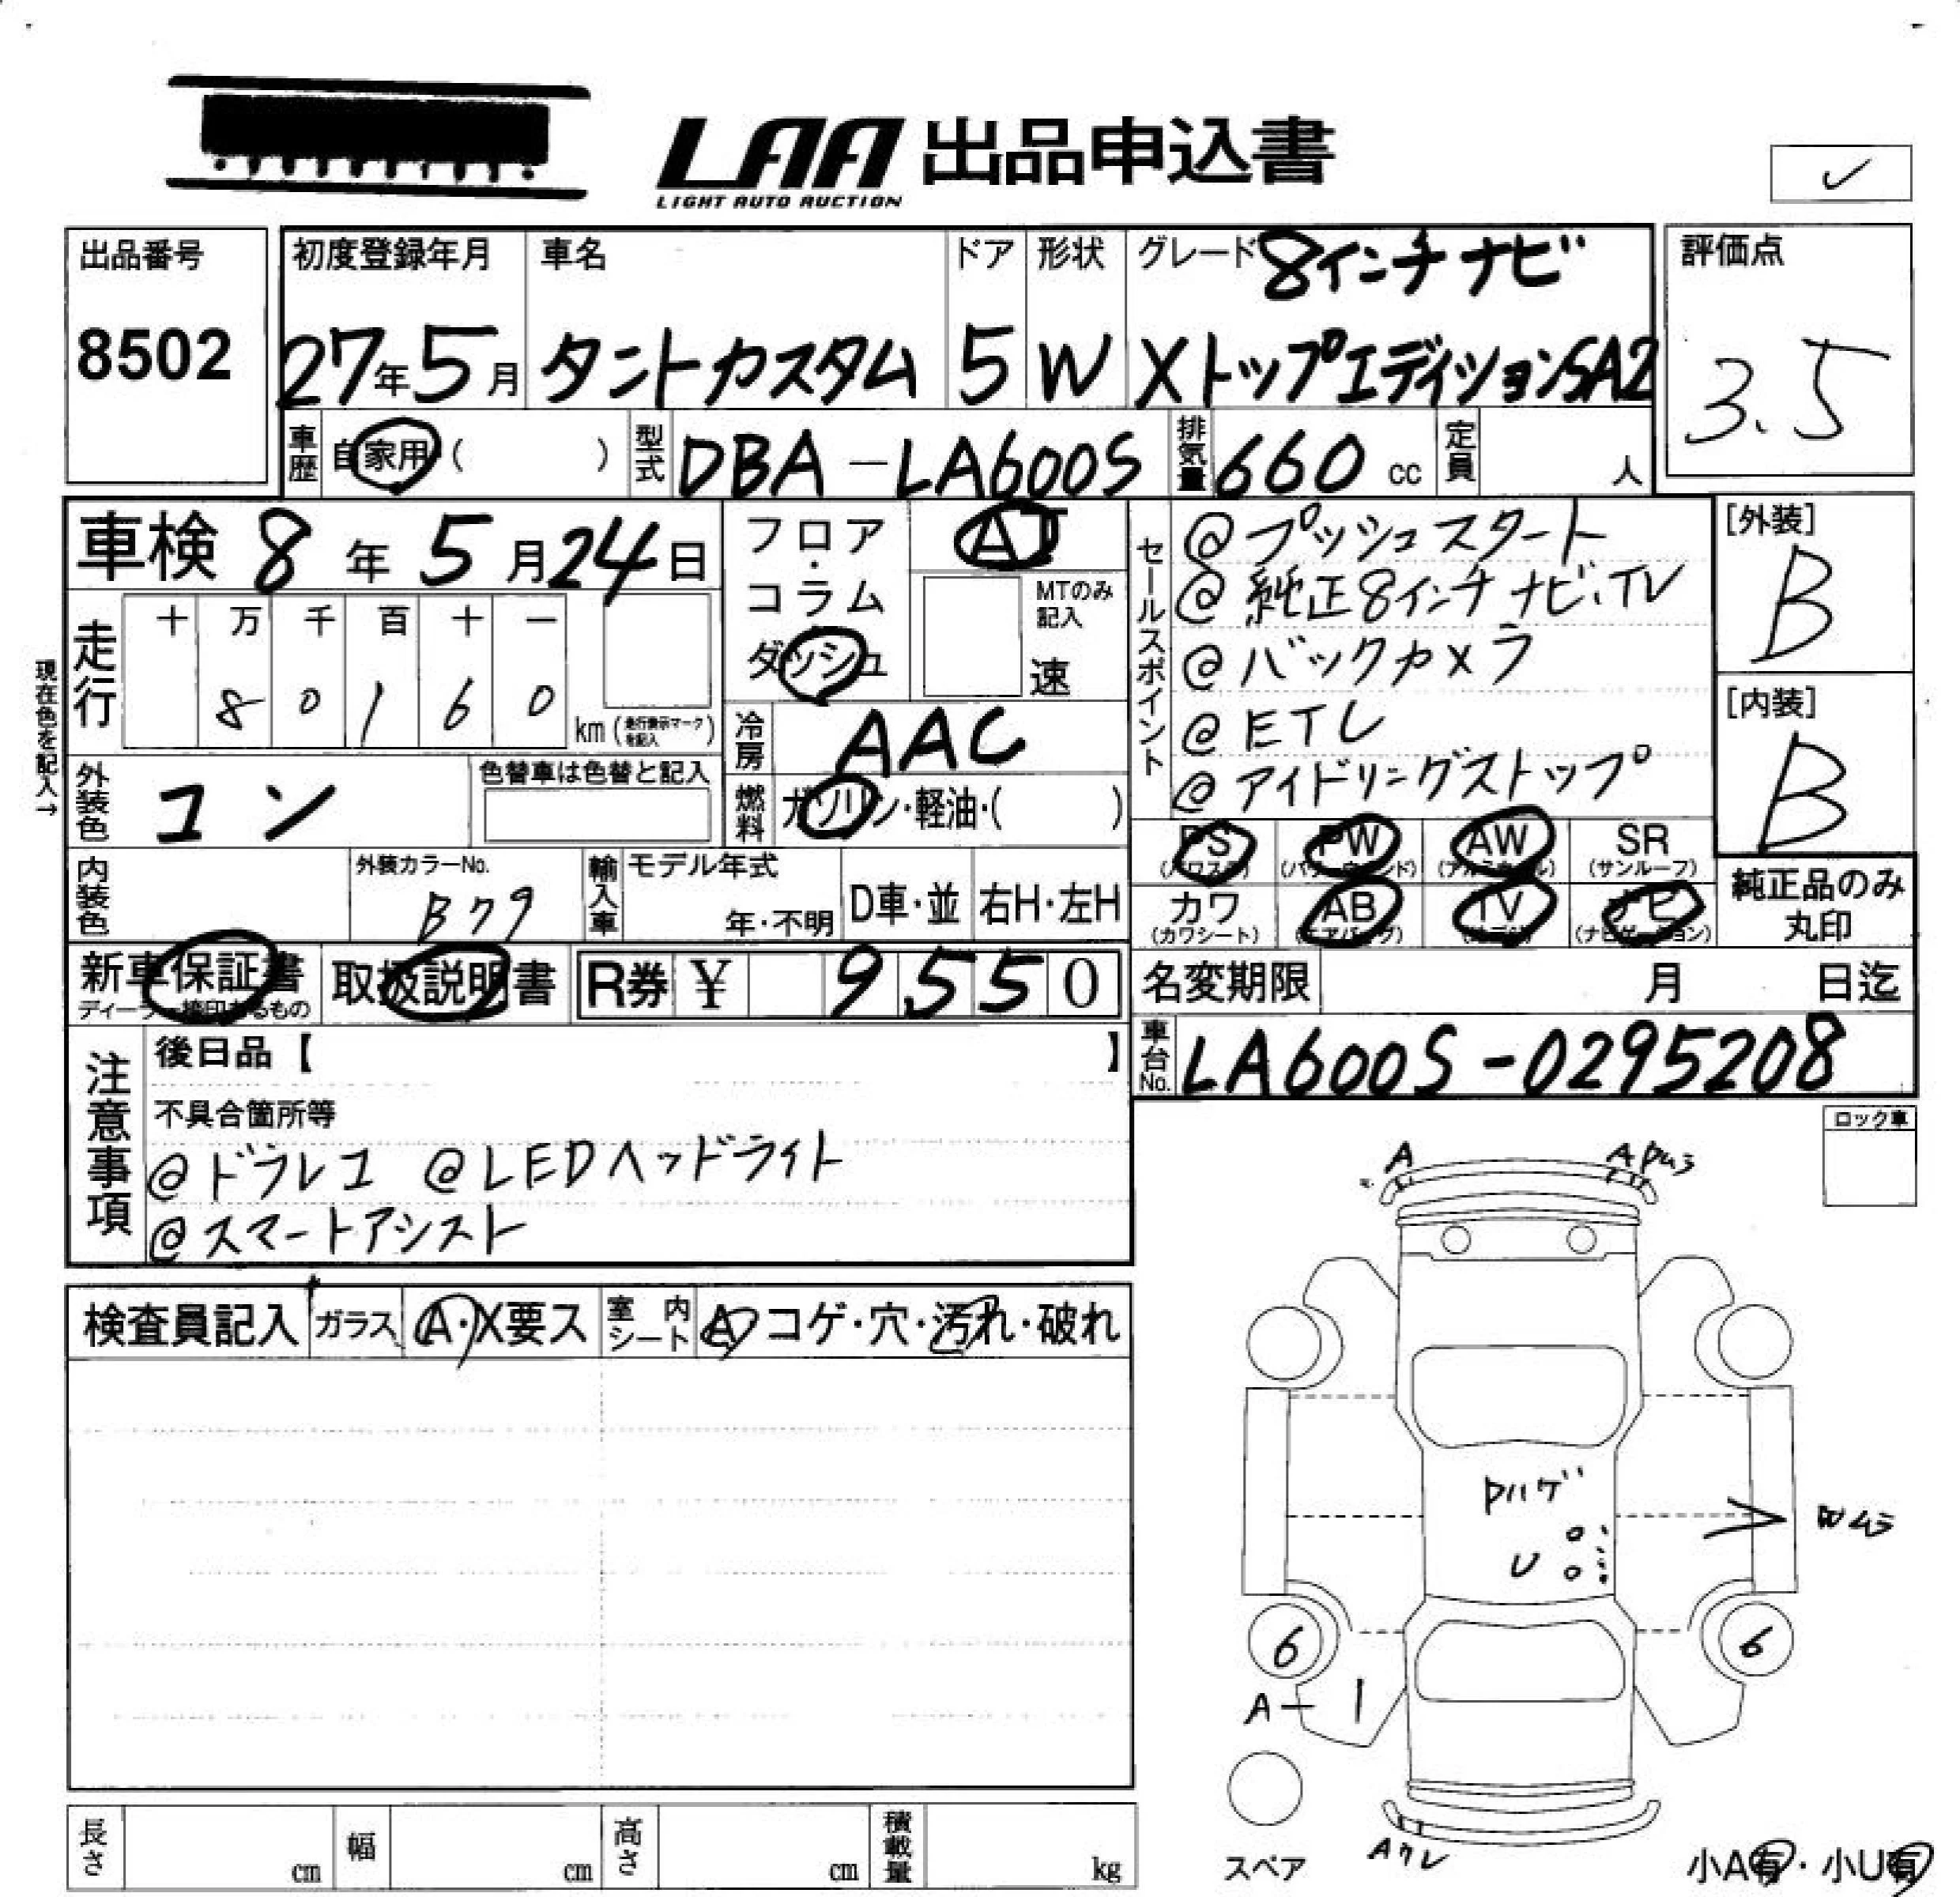 LAA 出品申込書
LIGHT AUTO AUCTION
出品番号
8502
初度登録年月
27年5月
車名
タントカスタム
ドア
5
形状
W
グレード 8インチナビ
XトップエディションSA2
評価点
3.5
車歴 自家用 ( )
型式 DBA-LA600S
排気量 660 cc
定員 人
車検 8年 5月 24日
フロア・コラム
ダッシュ
AT
MTのみ記入
速
走行
十 万 千 百 十 一
8 0 1 6 0
km (走行表示マークを記入)
現在色を記入→
冷房 AAC
外装色 コン
色替車は色替と記入
燃料 ガソリン・軽油・( )
内装色
外装カラーNo.
輸入車
モデル年式
年・不明
D車・並
右H・左H
セールスポイント
@プッシュスタート
@純正8インチナビ、TV
@バックカメラ
@ETC
@アイドリングストップ
[外装]
B
[内装]
B
PS (パワステ)
PW (パワーウィンド)
AW (アルミホイル)
SR (サンルーフ)
カワ (カワシート)
AB (エアバッグ)
TV (テレビ)
ナビ (ナビゲーション)
純正品のみ
丸印
新車保証書
ディーラー捺印あるもの
取扱説明書
R券 ¥ 9550
名変期限 月 日迄
車台No. LA600S-0295208
注意事項
後日品【 】
不具合箇所等
@ドラレコ @LEDヘッドライト
@スマートアシスト
ロック車
検査員記入
ガラス A・X要ス
室内シート A・コゲ・穴・汚れ・破れ
A
A Pムラ
Pハゲ
U
6
6
A-1
スペア
小A有・小U有
長さ cm
幅 cm
高さ cm
積載量 kg